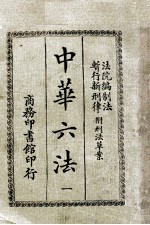 法院編制法
暫行新刑律 附刑法草案
中華六法 一
商務印書館印行